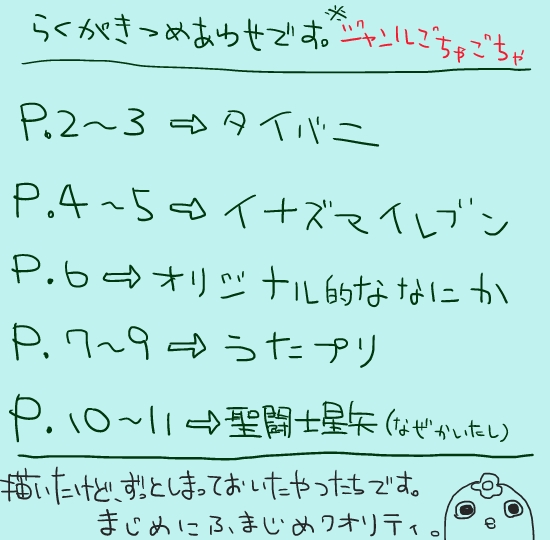 らくがきつめあわせです。※ジャンルごちゃごちゃ
P.2～3 ⇨ タイバニ
P.4～5 ⇨ イナズマイレブン
P.6 ⇨ オリジナル的ななにか
P.7～9 ⇨ うたプリ
P.10～11 ⇨ 聖闘士星矢(なぜかいたし)
描いたけど、ずっとしまっておいたやつたちです。
まじめにふまじめクオリティ。